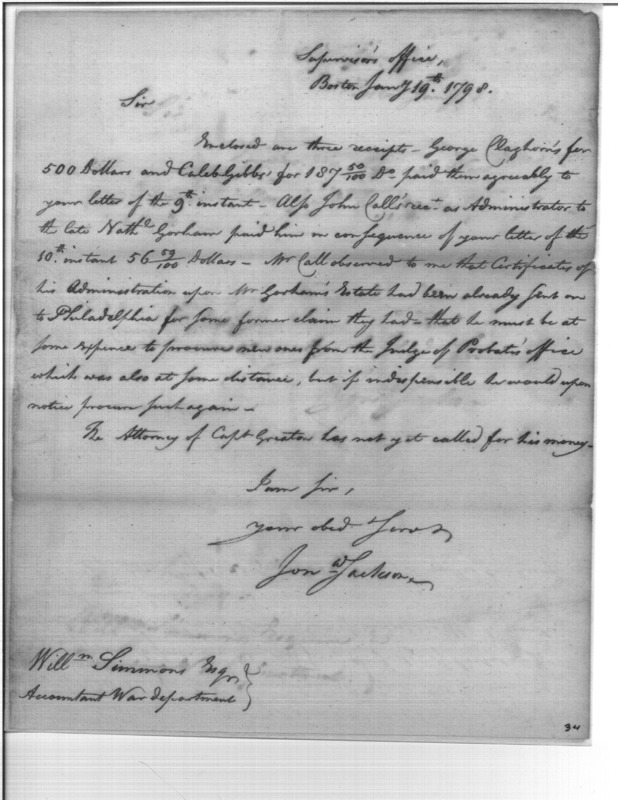 Supervisor's office,
Boston Jany 19th. 1798.
Sir
Enclosed are three receipts - George Claghorn's for
500 Dollars and Caleb Gibbs' for 187 50/100 Do. paid them agreeably to
your letter of the 9th. instant - Also John Call's rect. as Administrator to
the late Nathl. Gorham paid him in consequence of your letter of the
10th. instant 56 59/100 Dollars - Mr Call observed to me that Certificates of
his Administration upon Mr Gorham's Estate had been already sent on
to Philadelphia for some former claim they had - that he must be at
some expence to procure new ones from the Judge of Probate's office
which was also at some distance, but if indispensible he would upon
notice procure such again -
The Attorney of Capt Greaton has not yet called for his money -
I am Sir,
your obed. Servt
Jona. Jackson
Willm Simmons Esqr
Accountant War department
34